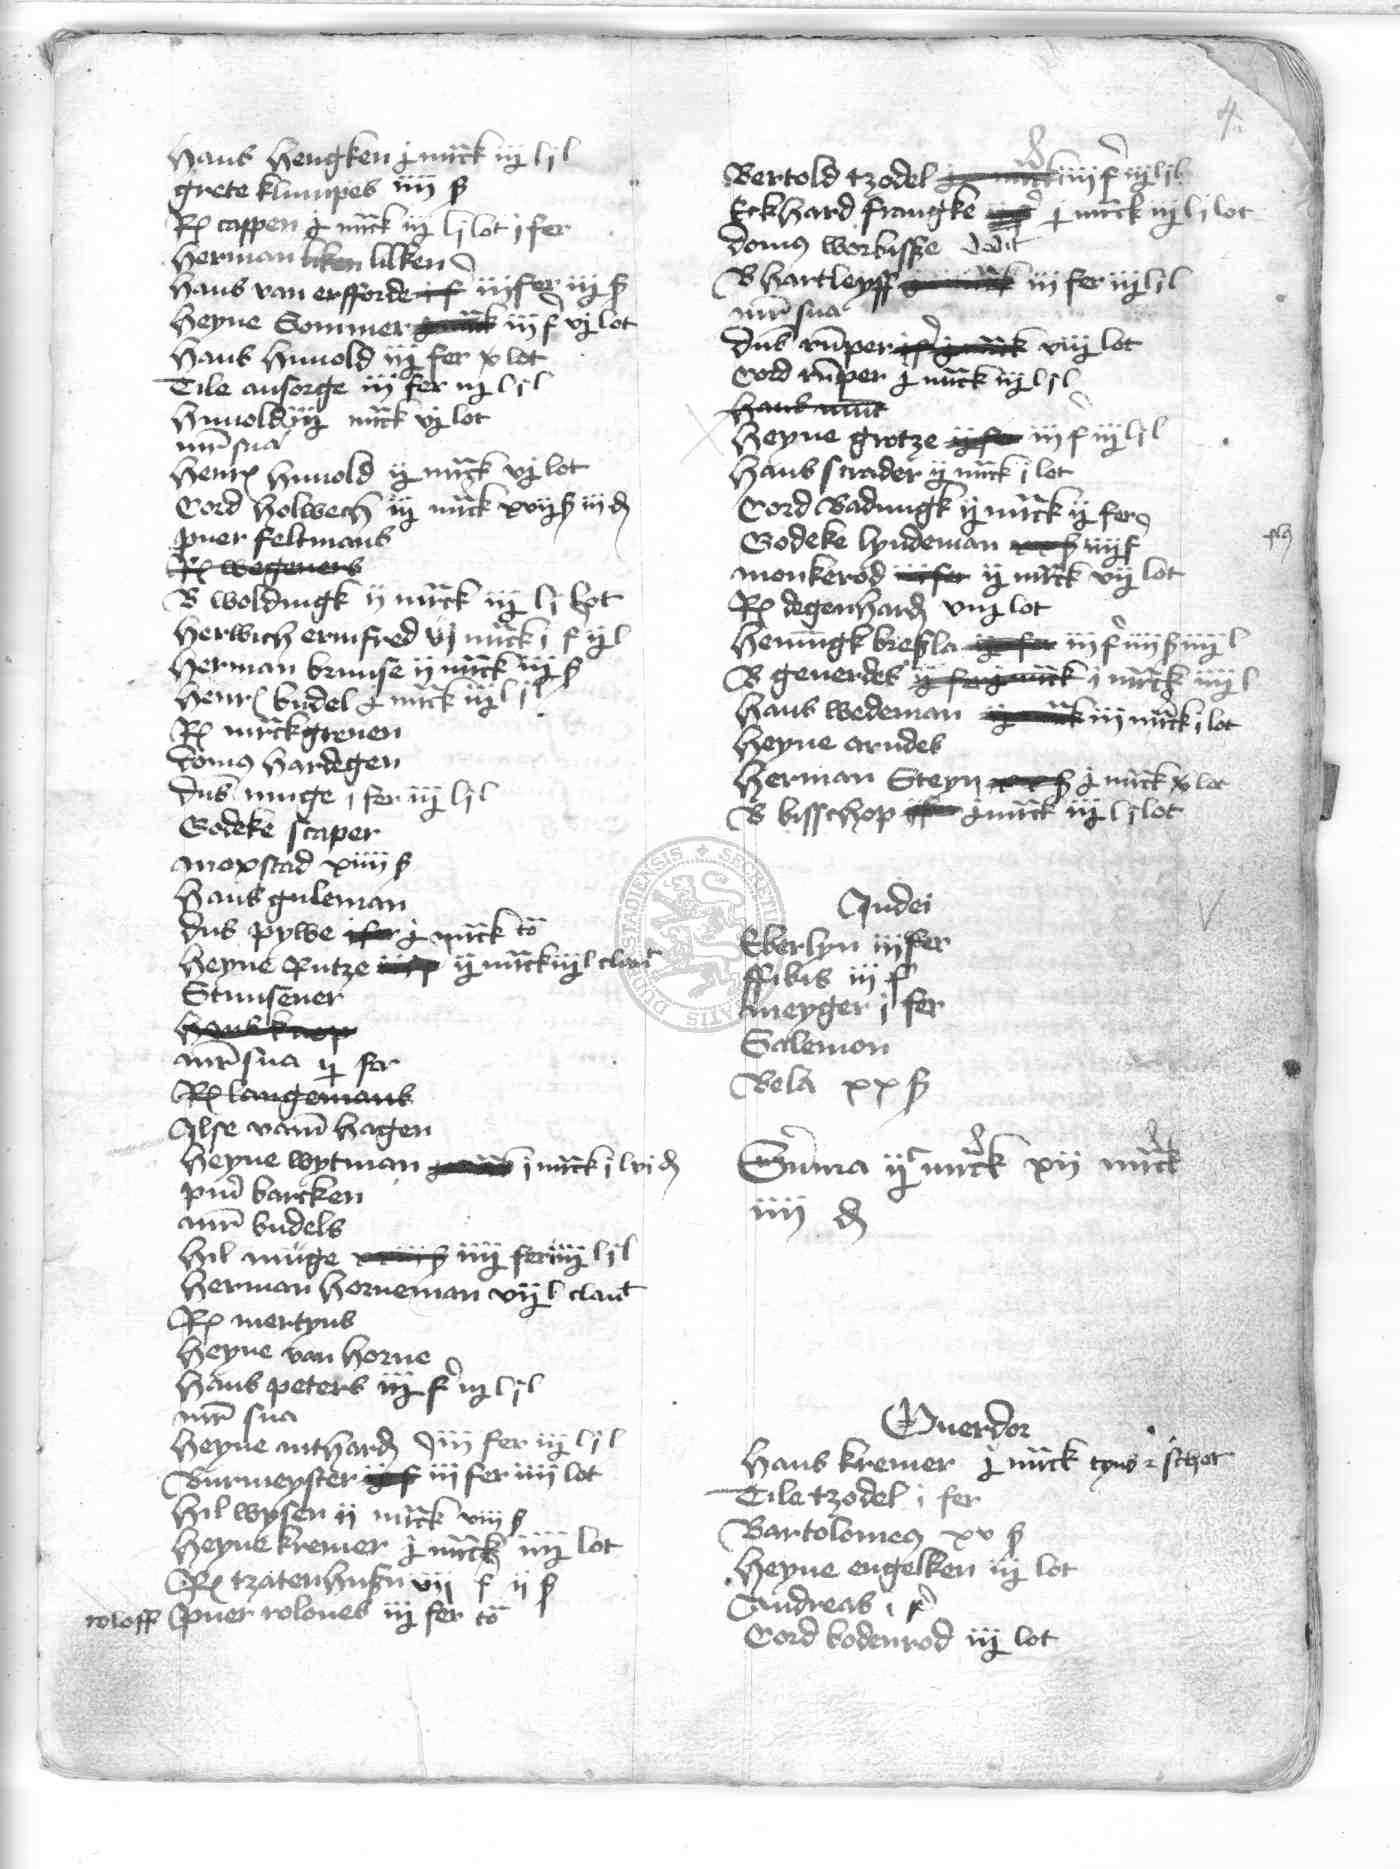 4
Hans Hengken j mrck iij l j l
grete klumpes iiii ß
Rel cappen j mrck iij l j lot j fer
Herman liken lilken
Hans van erfforde j f iij fer iij ß
Heyne Sommer iij f vj lot
Hans Hunold iij fer x lot
Tile ansorge iij fer iij l j l
Hunold iij mrck vj lot
mr sua
Henr Hunold ij mrck vj lot
Cord Holwech iij mrck xvij ß iij d
puer feltmans
Rel wegeners
B woldingk ij mrck iij l j lot
Herwich ernfred vj mrck j f ij l
Herman brunse ij mrck iij ß
Henr budel j mrck iij l j l
Rel mrckgreuen
domus Hardegen
dns munge j fer iij l j l
Godeke scaper
moxstad xiiii ß
Hans guleman
dns pywe j fer j mrck to
Heyne Rutze ij mrck iij l claut
Stunsener
Hans knop
mr sua ij fer
Rel langemans
Ilse vam Hagen
Heyne wytman j mrck j l vj d
pui barcken
mr budels
Hil muge iiij fer iiij l j l
Herman Horneman vij l claut
Rel mertyns
Heyne van Horne
Hans peters iij f iij l j l
mr sua
Heyne mthard iij fer iij l j l
Burmeyster ij f iij fer iiij lot
Hil wysen ij mrck viij ß
Heyne kremer j mrck iiij lot
Rel tzatenhusen vij f ij ß
roloff puer rolones iij fer to
Bertold tzodel j mrck iiij f iij l j l
Eckhard frangke j mrck iij l j lot
domus worbisse dedit
B Hartleyff iij fer iij l j l
mr sua
dns rumper viij lot
Cord rumper j mrck iij l j l
Hans munt
Heyne grotze ij fer iij f iij l j l
Hans scrader ij mrck j lot
Cord Badungk ij mrck ij fer
Godeke lyndeman iiij f
monkerod iij fer ij mrck vij lot
Rel degenhard viij lot
Henningk bresla iij f iiij ß iiij l
B geuerdes ij fer j mrck j mrck iiij l
Hans wedeman iij mrck j lot
Heyne arndes
Herman Steyn j mrck x lot
B bisschop j mrck iij l j lot
Judei
Eberlyn iij fer
ffibis iij f
meyger j fer
Salemon
Bela xx ß
Summa ij c mrck xij mrck
iiii d
Querdor
Hans kremer j mrck tyns z schot
Tile tzodel j fer
Bartolomeus xv ß
Heyne engelken iij lot
Andreas j f
Cord bodenrod iij lot